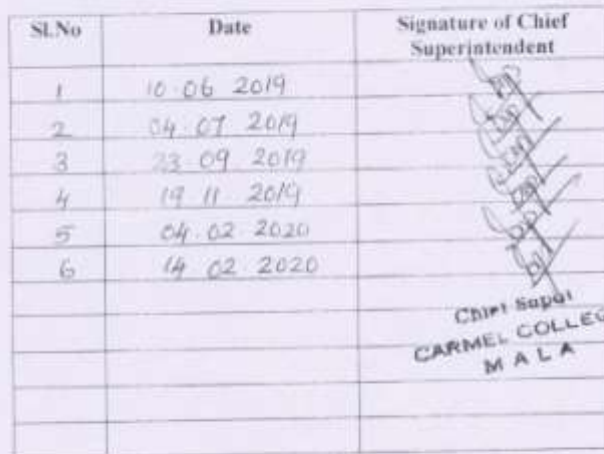 Sl.No Date Signature of Chief Superintendent
1 10.06 2019
2 04.07 2019
3 23.09 2019
4 19 11 2019
5 04.02 2020
6 14 02 2020
Chief Supdt
CARMEL COLLEG
MALA